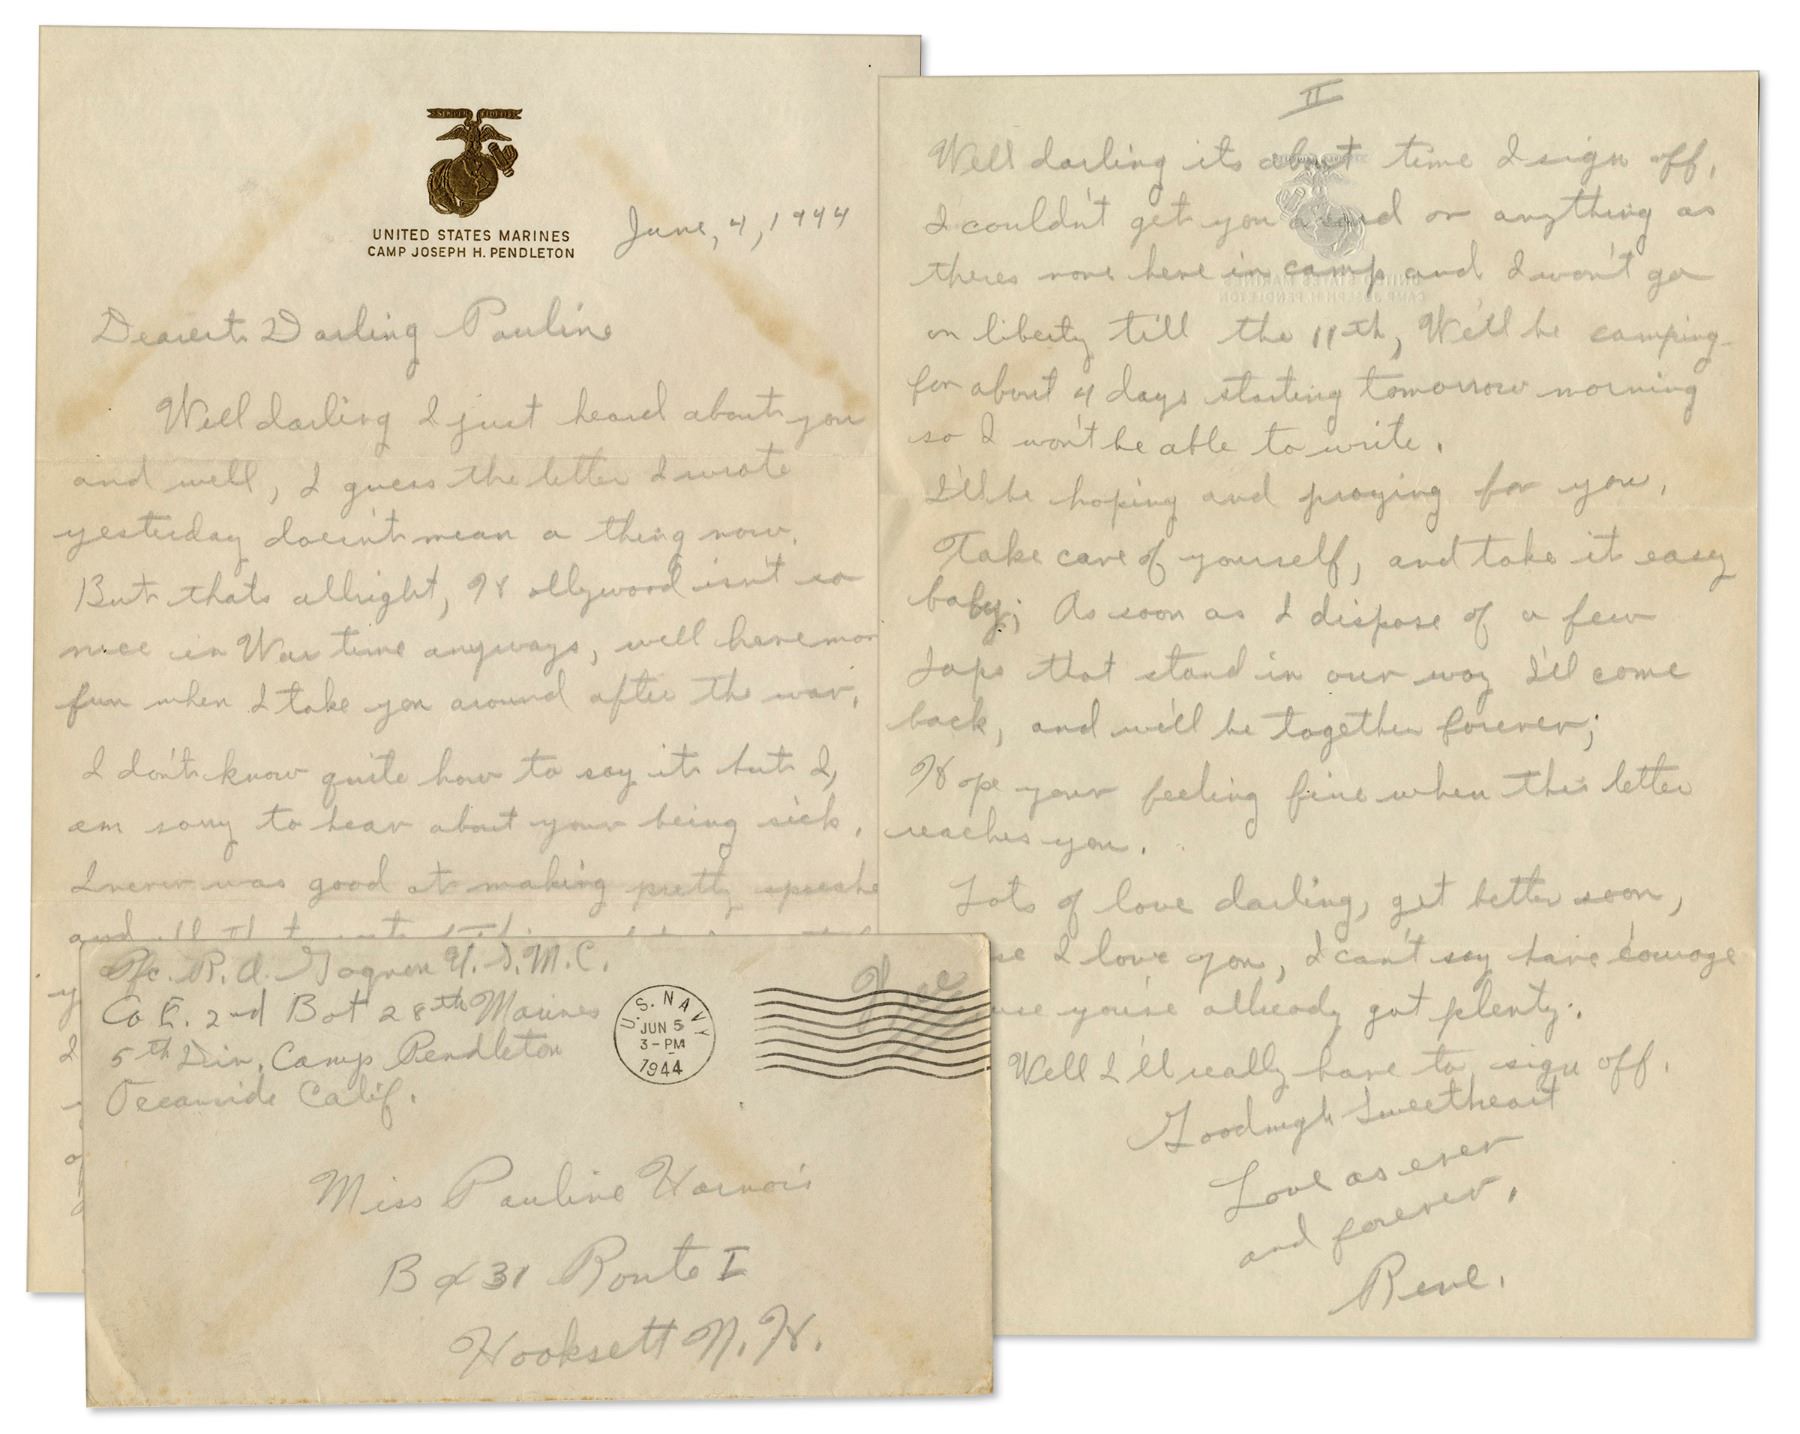 UNITED STATES MARINES
CAMP JOSEPH H. PENDLETON
June, 4, 1944
Dearest Darling Pauline
Well darling I just heard about you
and well, I guess the letter I wrote
yesterday doesn't mean a thing now.
But thats allright, Hollywood isn't so
nice in War time anyways, well have mor
fun when I take you around after the war.
I don't know quite how to say it but I,
am sorry to hear about your being sick.
I never was good at making pretty speeche
and all that
Pfc. R. A. Gagnon U.S.M.C.
Co E. 2nd Bat 28th Marines
5th Div. Camp Pendleton
Oceanside Calif.
U.S. NAVY
JUN 5
3-PM
1944
Free
Miss Pauline Harnois
Box 31 Route I
Hooksett N.H.
II
Well darling its about time I sign off,
I couldn't get you a card or anything as
theres none here in camp and I won't go
on liberty till the 11th, We'll be camping
for about 4 days starting tomorrow morning
so I won't be able to write.
I'll be hoping and praying for you,
Take care of yourself, and take it easy
baby; As soon as I dispose of a few
Japs that stand in our way I'll come
back, and we'll be together forever;
Hope your feeling fine when this letter
reaches you.
Lots of love darling, get better soon,
se I love you, I can't say have courage
use you're allready got plenty.
Well I'll really have to sign off.
Goodnigh Sweetheart
Love as ever
and forever,
Rene.